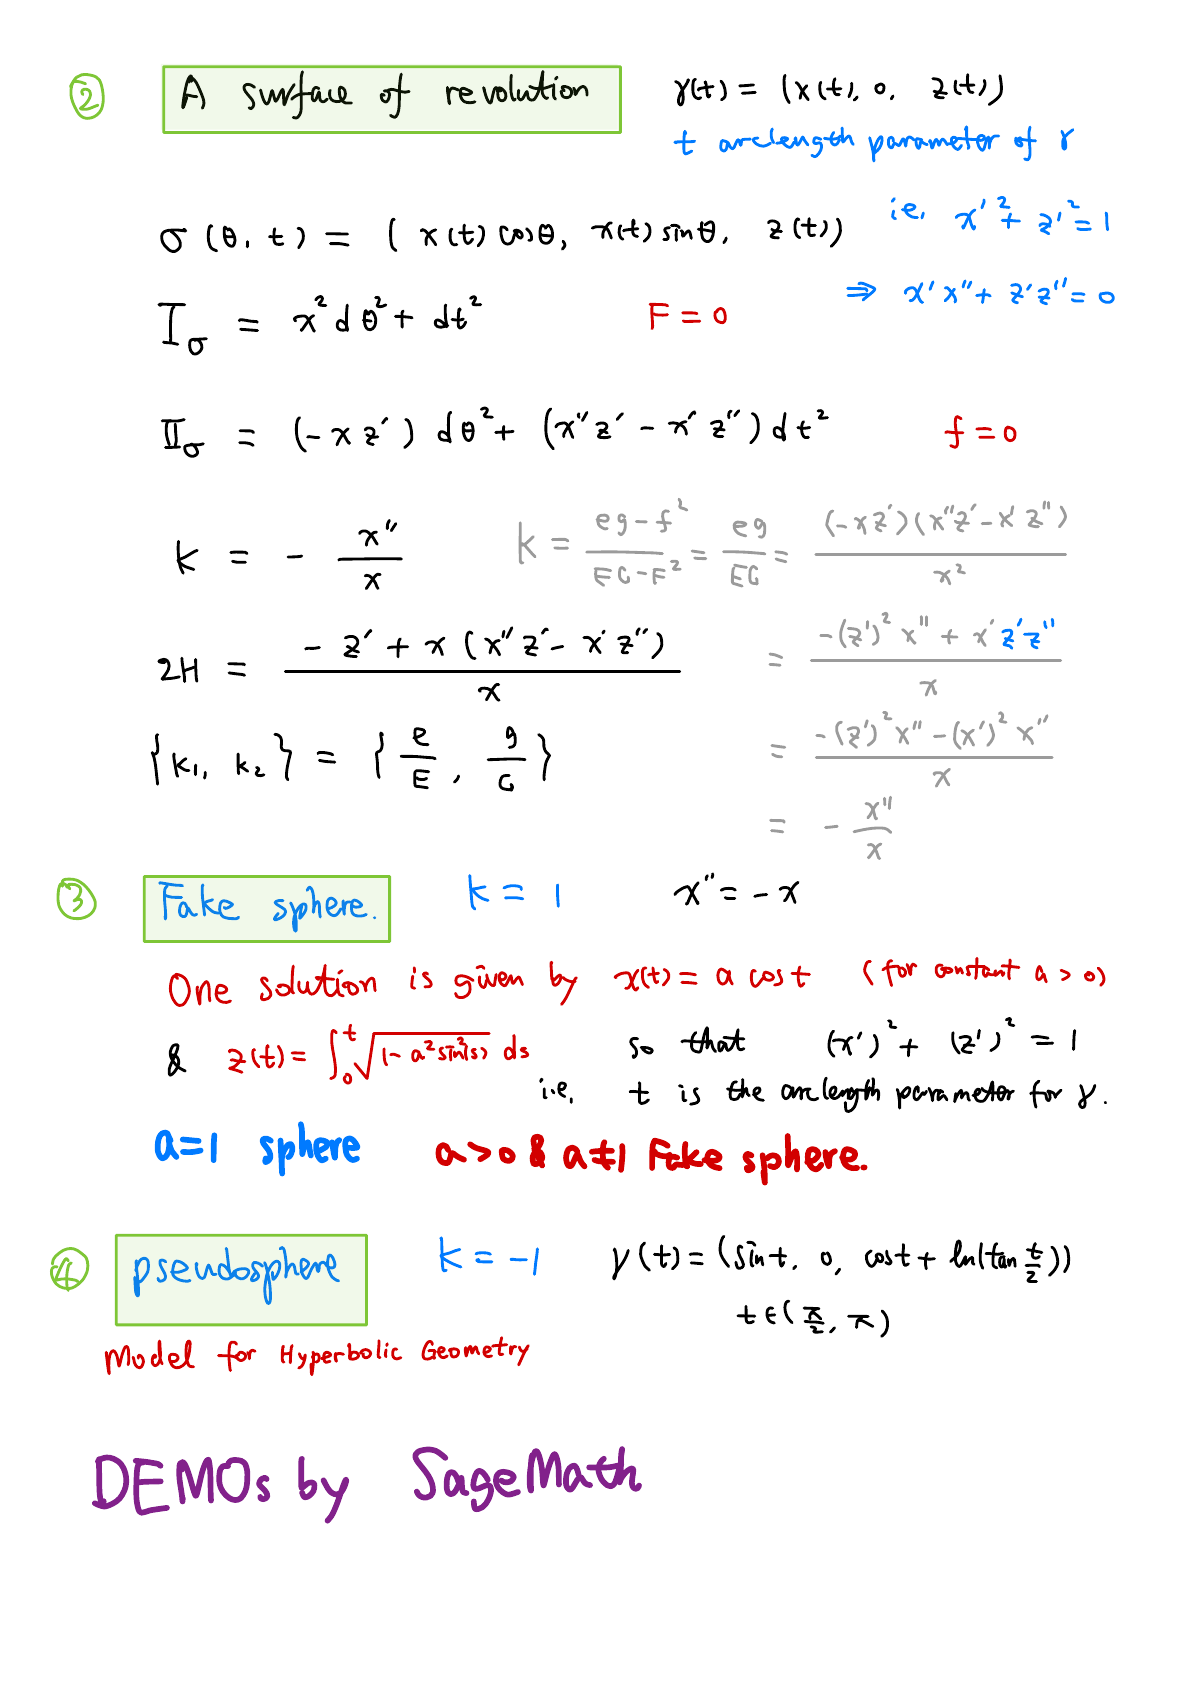 ② A surface of revolution γ(t) = (x(t), 0, z(t))
t arclength parameter of γ
σ(θ, t) = (x(t) cosθ, x(t) sinθ, z(t)) i.e. x'² + z'² = 1
⇒ x'x'' + z'z'' = 0
I_σ = x² dθ² + dt² F = 0
II_σ = (-x z') dθ² + (x''z' - x'z'') dt² f = 0
K = - x''/x K = (eg - f²)/(EG - F²) = eg/EG = (-xz')(x''z' - x'z'')/x²
2H = (-z' + x(x''z' - x'z''))/x = (-(z')² x'' + x'z'z'')/x
{k₁, k₂} = {e/E, g/G} = (-(z')² x'' - (x')² x'')/x
= - x''/x
③ Fake sphere. K = 1 x'' = -x
One solution is given by x(t) = a cos t (for constant a > 0)
& z(t) = ∫₀ᵗ √(1 - a² sin²(s)) ds so that (x')² + (z')² = 1
i.e. t is the arclength parameter for γ.
a=1 sphere a>0 & a≠1 Fake sphere.
④ pseudosphere K = -1 γ(t) = (sin t, 0, cos t + ln(tan t/2))
t ∈ (π/2, π)
Model for Hyperbolic Geometry
DEMOs by SageMath